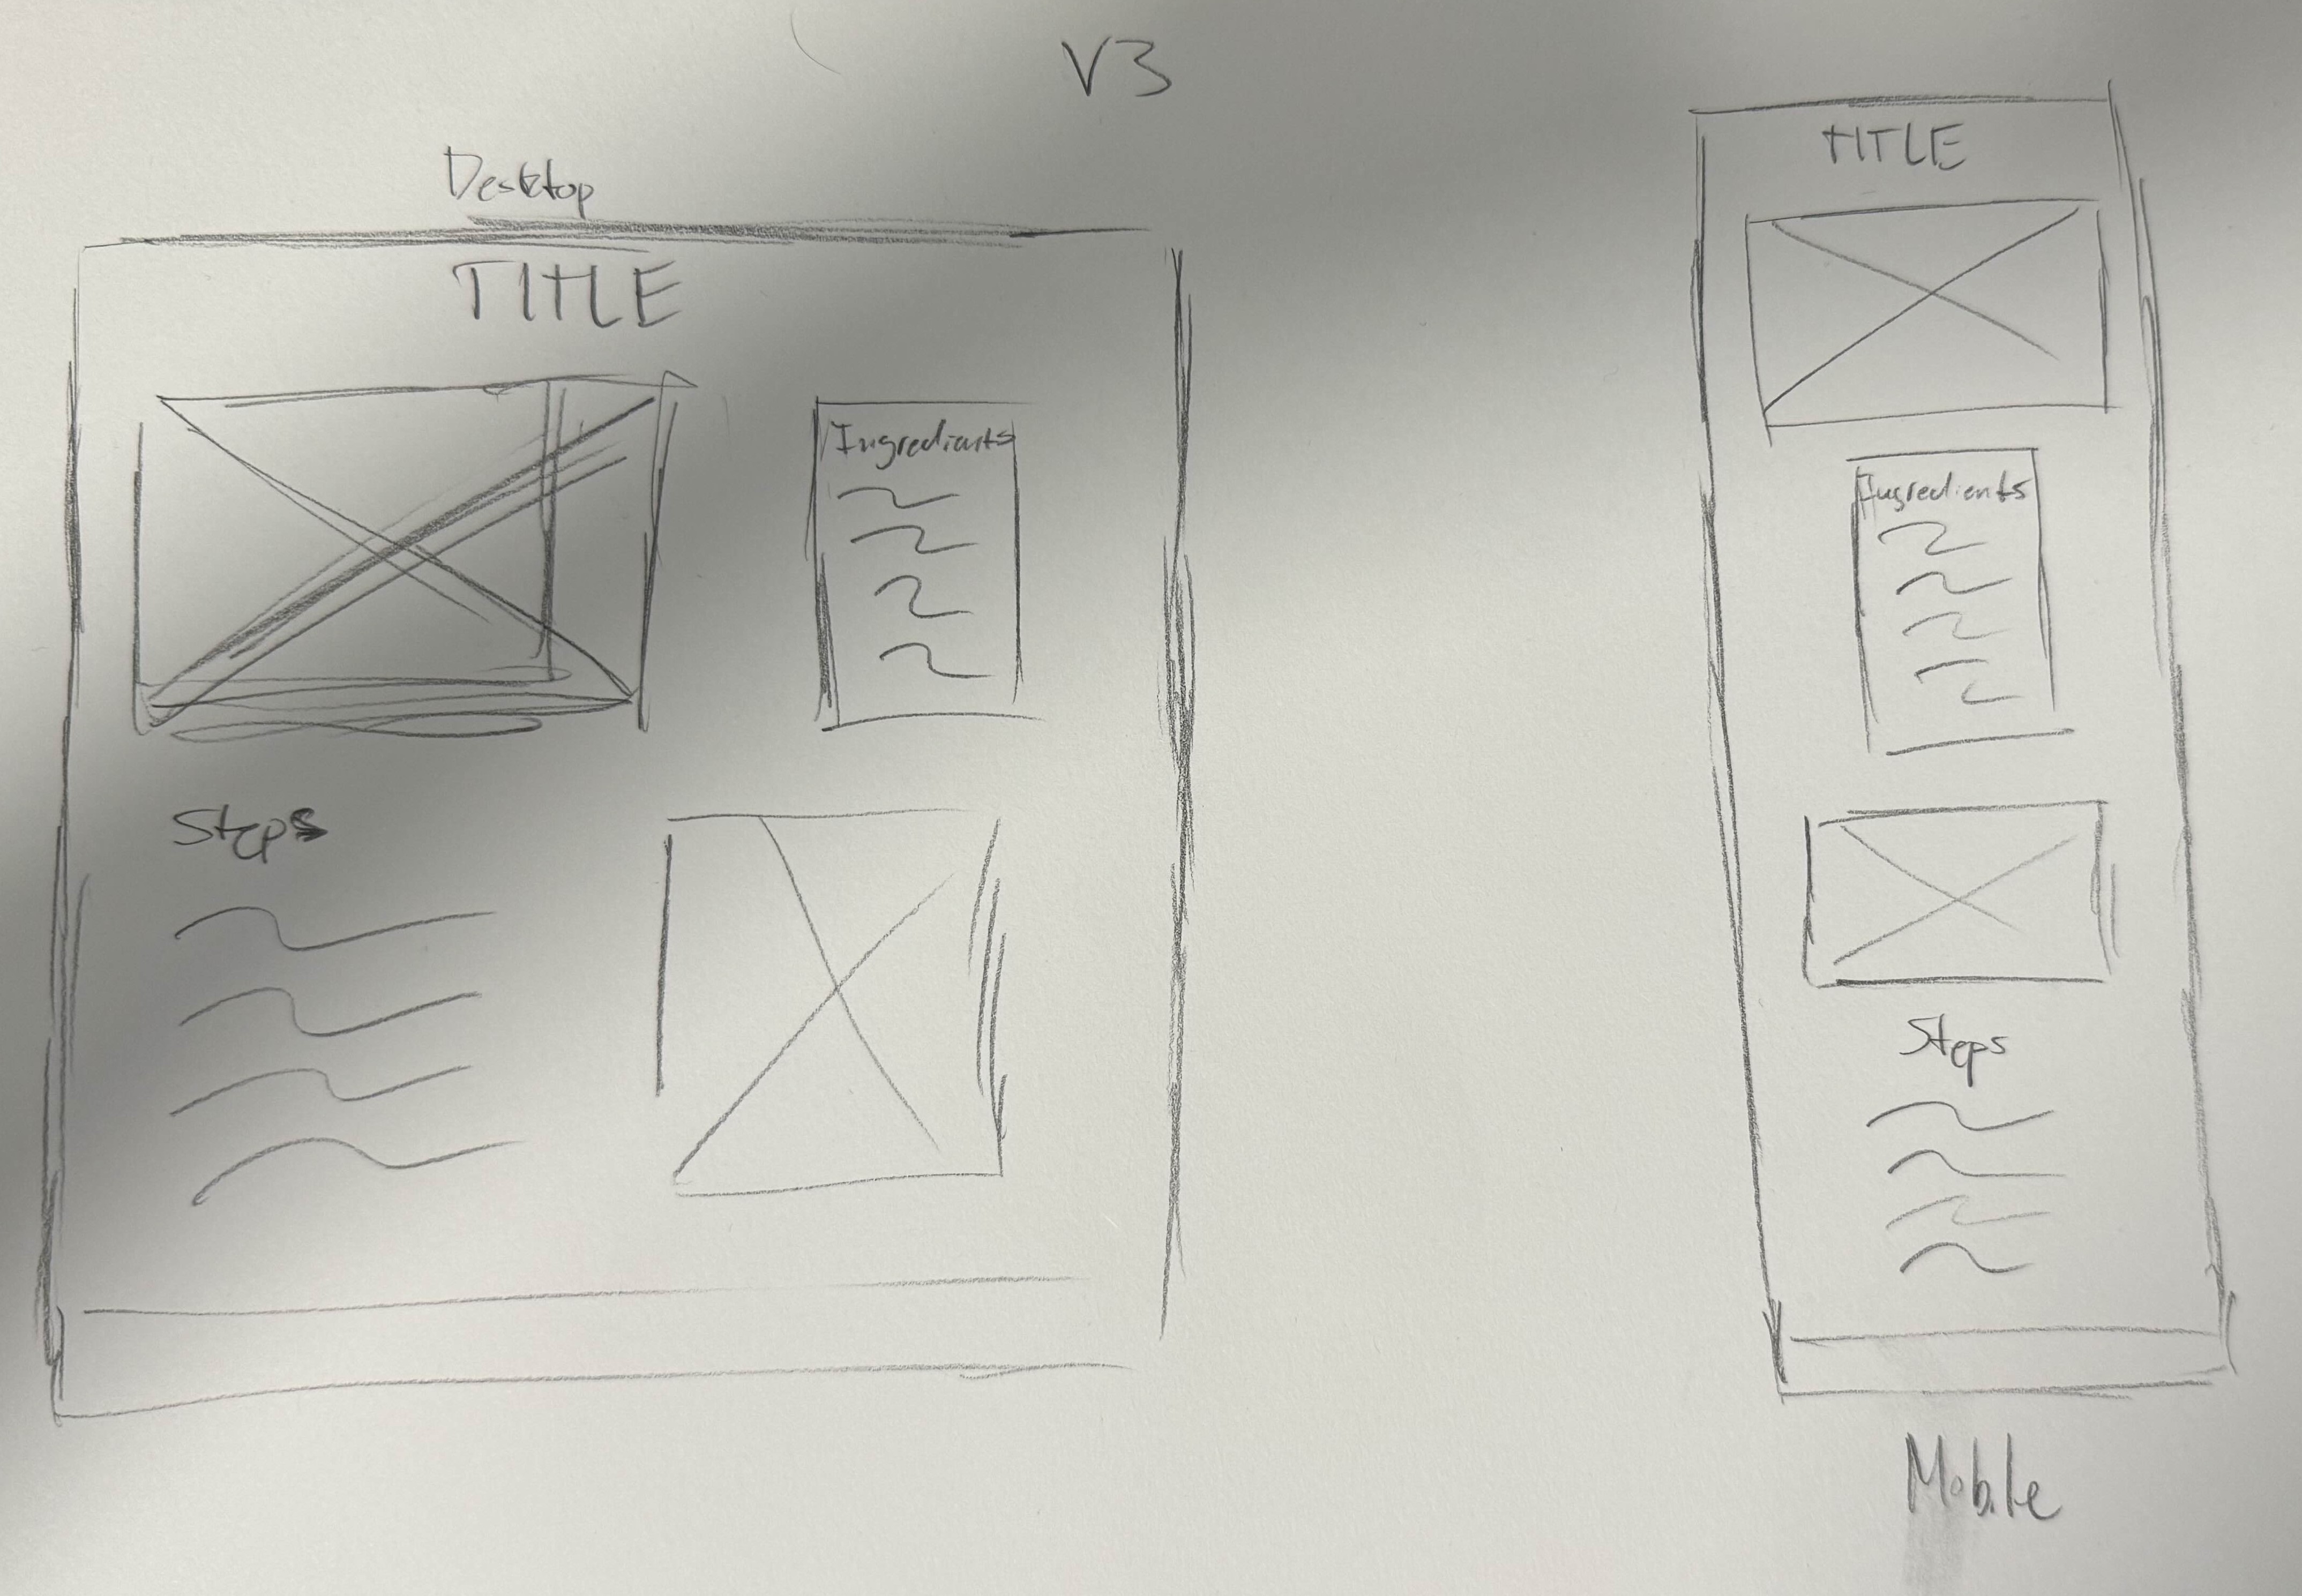 V3
Desktop
TITLE
Ingredients
Steps
TITLE
Ingredients
Steps
Mobile